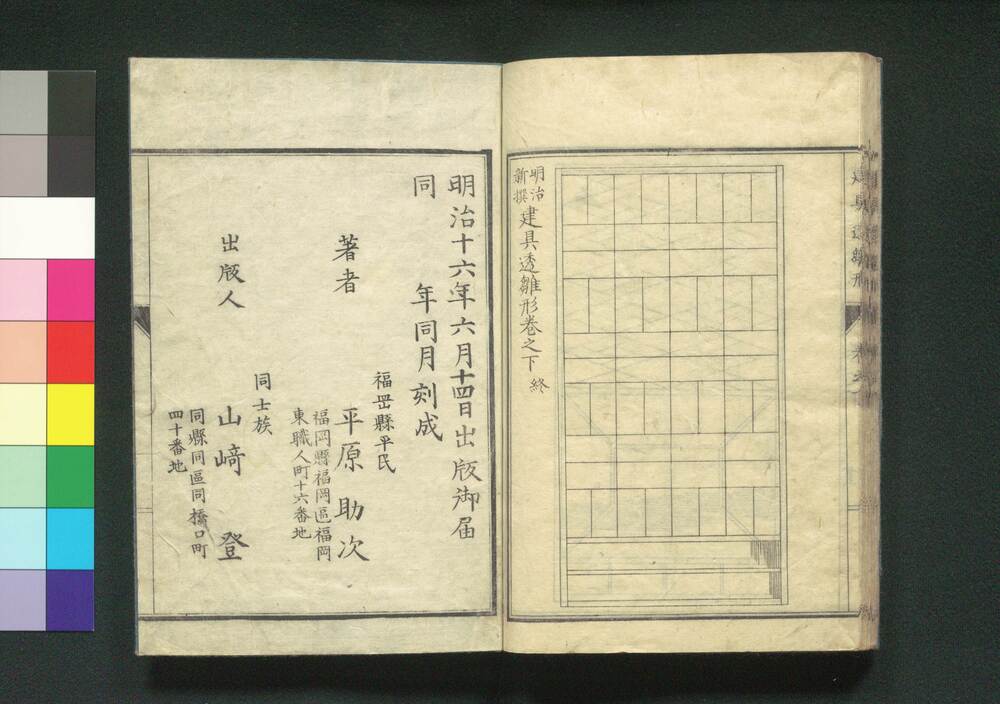 建具透雛形
明治
新撰
建具透雛形巻之下 終
明治十六年六月十四日出版御届
同 年同月刻成
福岡縣平民
著者 平原助次
福岡縣福岡區福岡
東職人町十六番地
同士族
出版人 山﨑 登
同縣同區同橋口町
四十番地